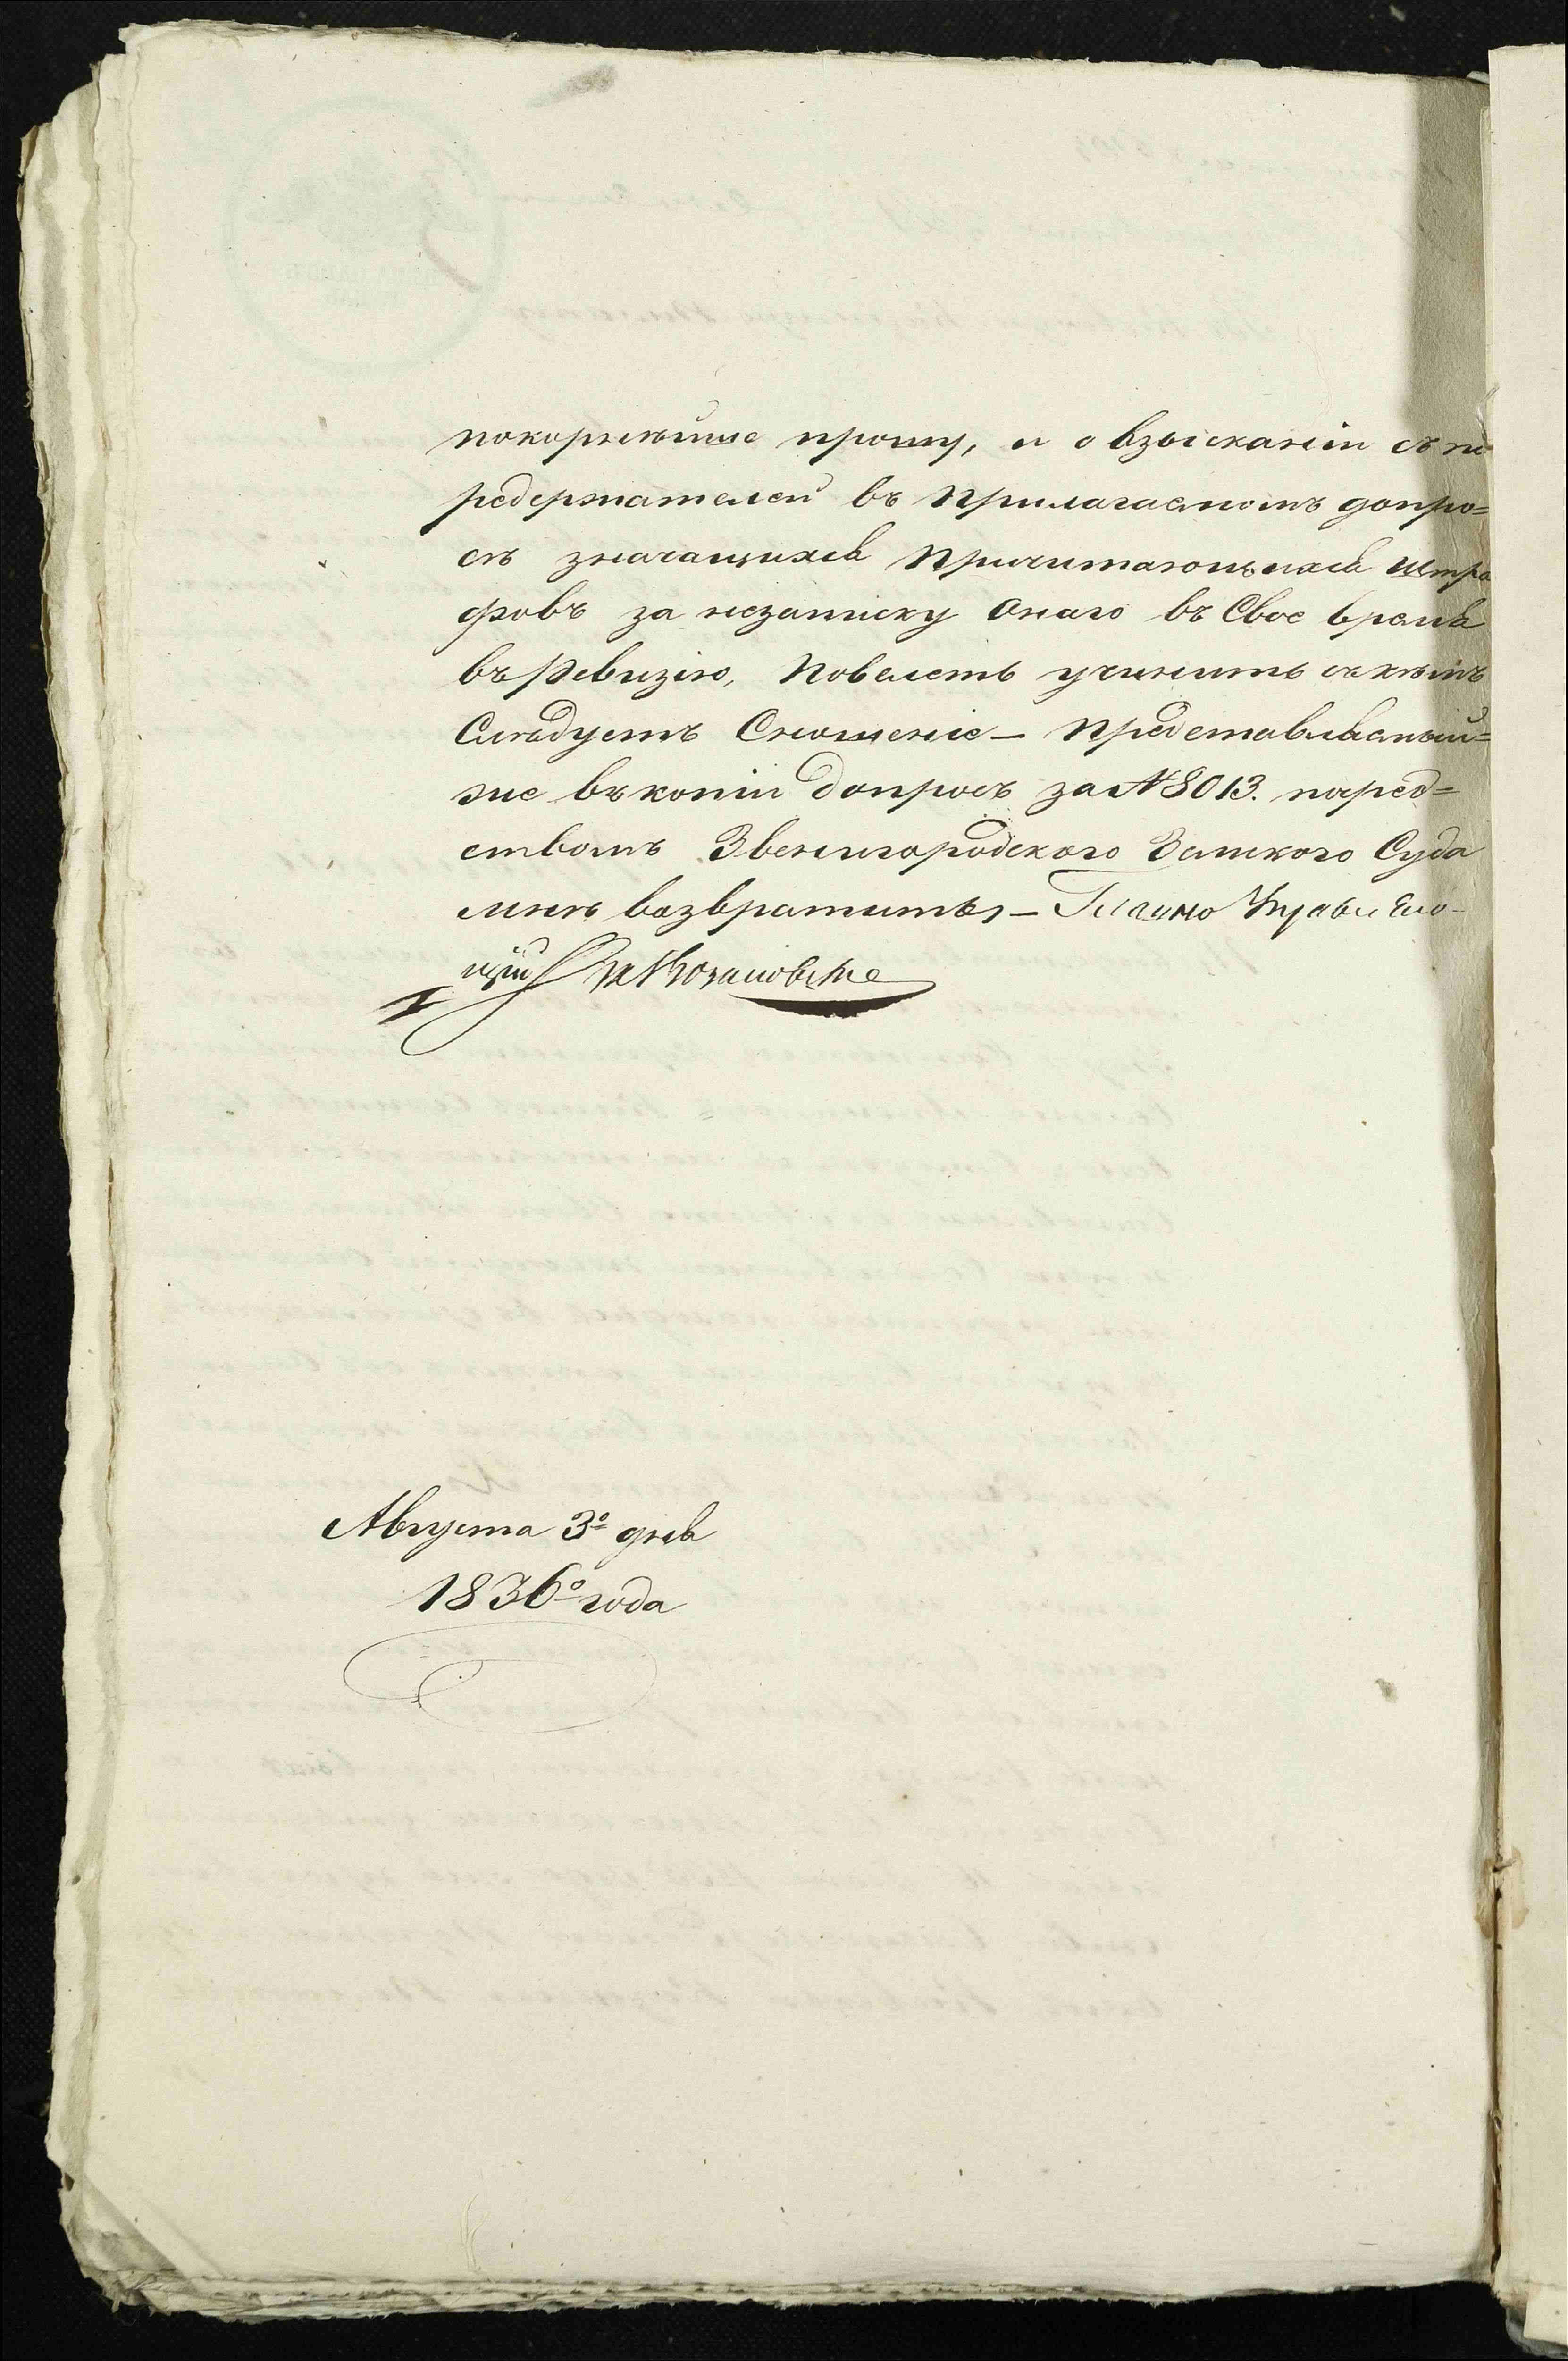 покорнѣйше прошу, и о взысканіи съ пе
редержателей въ прилагаемомъ допро=
сѣ значащихся причитающихся штра
фовъ за незаписку онаго въ свое время
въ Ревизію, повелеть учинить съ кѣмъ
Слѣдуетъ Сношеніе — представляемый=
же въ копіи допросъ за №8013. посред=
ствомъ Звенигородского Земского Суда
мнѣ возвратить — Главно Управляю-
щій
Августа 3º дня
1836º года